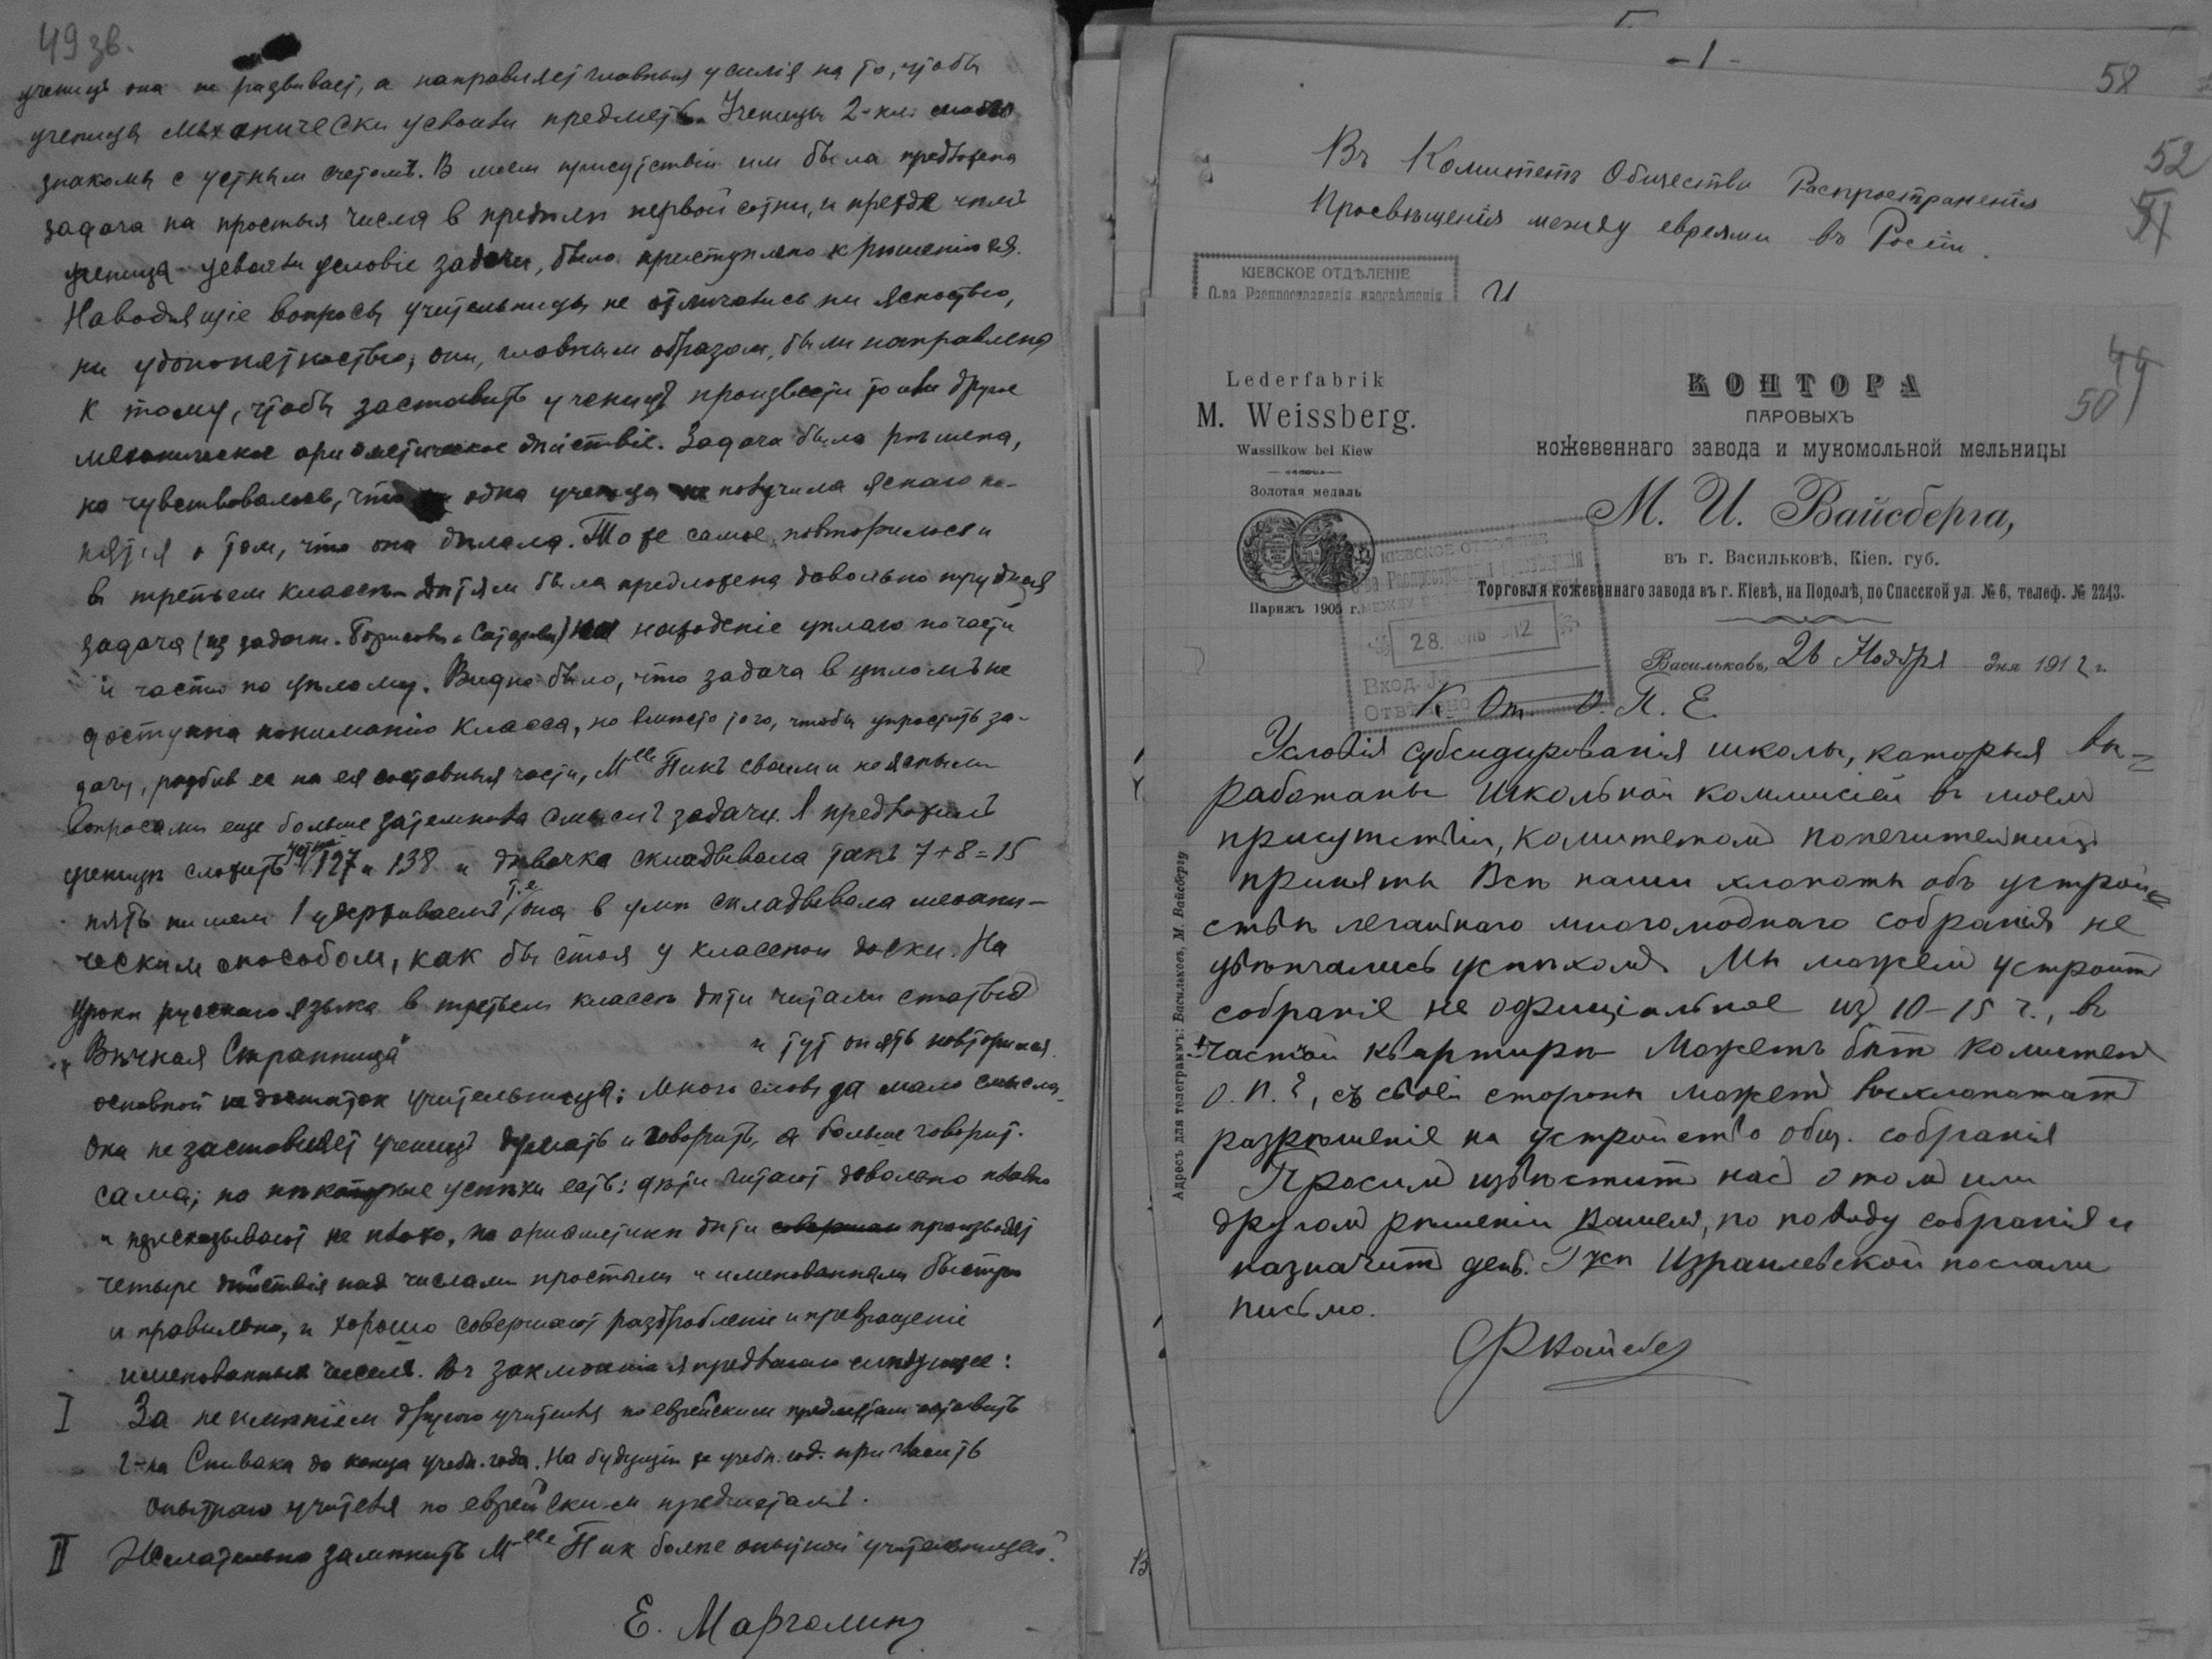 49 зв.
ученицъ она не развиваетъ, а направляетъ главныя усилія на то, чтобы
ученицы механически усвоили предметъ. Ученицы 2-кл. слабо
знакомы с устным счетомъ. В моем присутствіи им была предложена
задача на простыя числа в предѣлѣ первой сотни, и прежде чѣмъ
ученица усвоили условіе задачи, было приступлено к рѣшенію ея.
Наводящіе вопросы учительницы не отличались ни ясностью,
ни удобопонятностью; они, главным образом, были направлена
к тому, чтобы заставить ученицъ произвести то или другое
механическое ариѳметическое дѣйствіе. Задача была рѣшена,
но чувствовалось, что одна ученица не получила яснаго по-
нятія о том, что она дѣлала. То же самое повторилось и
в третьем классѣ. Дѣтям была предложена довольно трудная
задача (из задачн. Борисова и Сатарова) на нахожденіе цѣлаго по части
и части по цѣлому. Видно было, что задача в цѣломъ не
доступна пониманію класса, но вмѣсто того, чтобы упростить за-
дачу, разбив ее на ея составныя части, М-lle Пикъ своими неясными
вопросами еще больше затемнила смыслъ задачи. Я предложилъ
ученицѣ сложить устно 127 и 138 и дѣвочка складывала такъ 7+8=15
пять пишем 1 удерживаемъ, т.е. она в умѣ складывала механи-
ческим способом, как бы стоя у классной доски. На
уроки русскаго языка в третьем классѣ дѣти читали статью
„Вѣчная Странница" и тут опять повторился
основной недостаток учительницы: много словъ да мало смысла.
Она не заставляет ученицъ думать и говорить, а больше говорит
сама; но нѣкоторые успѣхи есть: дѣти читают довольно плавно
и пересказывают не плохо, по ариѳметикѣ дѣти производят
четыре дѣйствія над числами простыми и именованными быстро
и правильно, и хорошо совершают раздробленіе и превращеніе
именованных чиселъ. Въ заключеніе я предлагаю слѣдующее:
I За неимѣніем другого учителя по еврейским предметам оставить
г-на Спивака до конца учебн. года. На будущій же учебн. год. пригласить
опытнаго учителя по еврейским предметамъ.
II Желательно замѣнить М-lle Пик болѣе опытной учительницей.
Е. Марголинъ
- 1 -
58
52
51
Въ Комитетъ Общества Распространенія
Просвѣщенія между евреями въ Россіи.
КІЕВСКОЕ ОТДѢЛЕНІЕ
О-ва Распространенія просвѣщенія
И
49
50
Lederfabrik
M. Weissberg.
Wassilkow bei Kiew
Золотая медаль
Парижъ 1905 г.
КОНТОРА
ПАРОВЫХЪ
кожевеннаго завода и мукомольной мельницы
М. И. Вайсберга,
въ г. Васильковѣ, Кіев. губ.
Торговля кожевеннаго завода въ г. Кіевѣ, на Подолѣ, по Спасской ул. № 6, телеф. № 2243.
КІЕВСКОЕ ОТДѢЛЕНІЕ
О-ва Распространенія просвѣщенія
МЕЖДУ
28 912
Вход. №
Отвѣчено
Васильковъ, 26 Ноября дня 1912 г.
К. От. О. П. Е.
Условія субсидированія школы, которыя вы-
работаны школьной коммисіей въ моемъ
присутствіи, комитетомъ попечительницъ
приняты. Всѣ наши хлопоты объ устрой-
ствѣ легальнаго многолюднаго собранія не
увѣнчались успѣхомъ. Мы можемъ устроить
собраніе не офиціальное изъ 10-15 ч., въ
частной квартирѣ. Можетъ быть комитетъ
О.П.Е., съ своей стороны можетъ выхлопотать
разрѣшеніе на устройство общ. собранія
Просимъ извѣстить насъ о томъ или
другомъ рѣшеніи вашемъ, по поводу собранія и
назначить день. Гжѣ Израилевской послали
письмо.
Адресъ для телеграммъ: Васильковъ, М. Вайсбергу